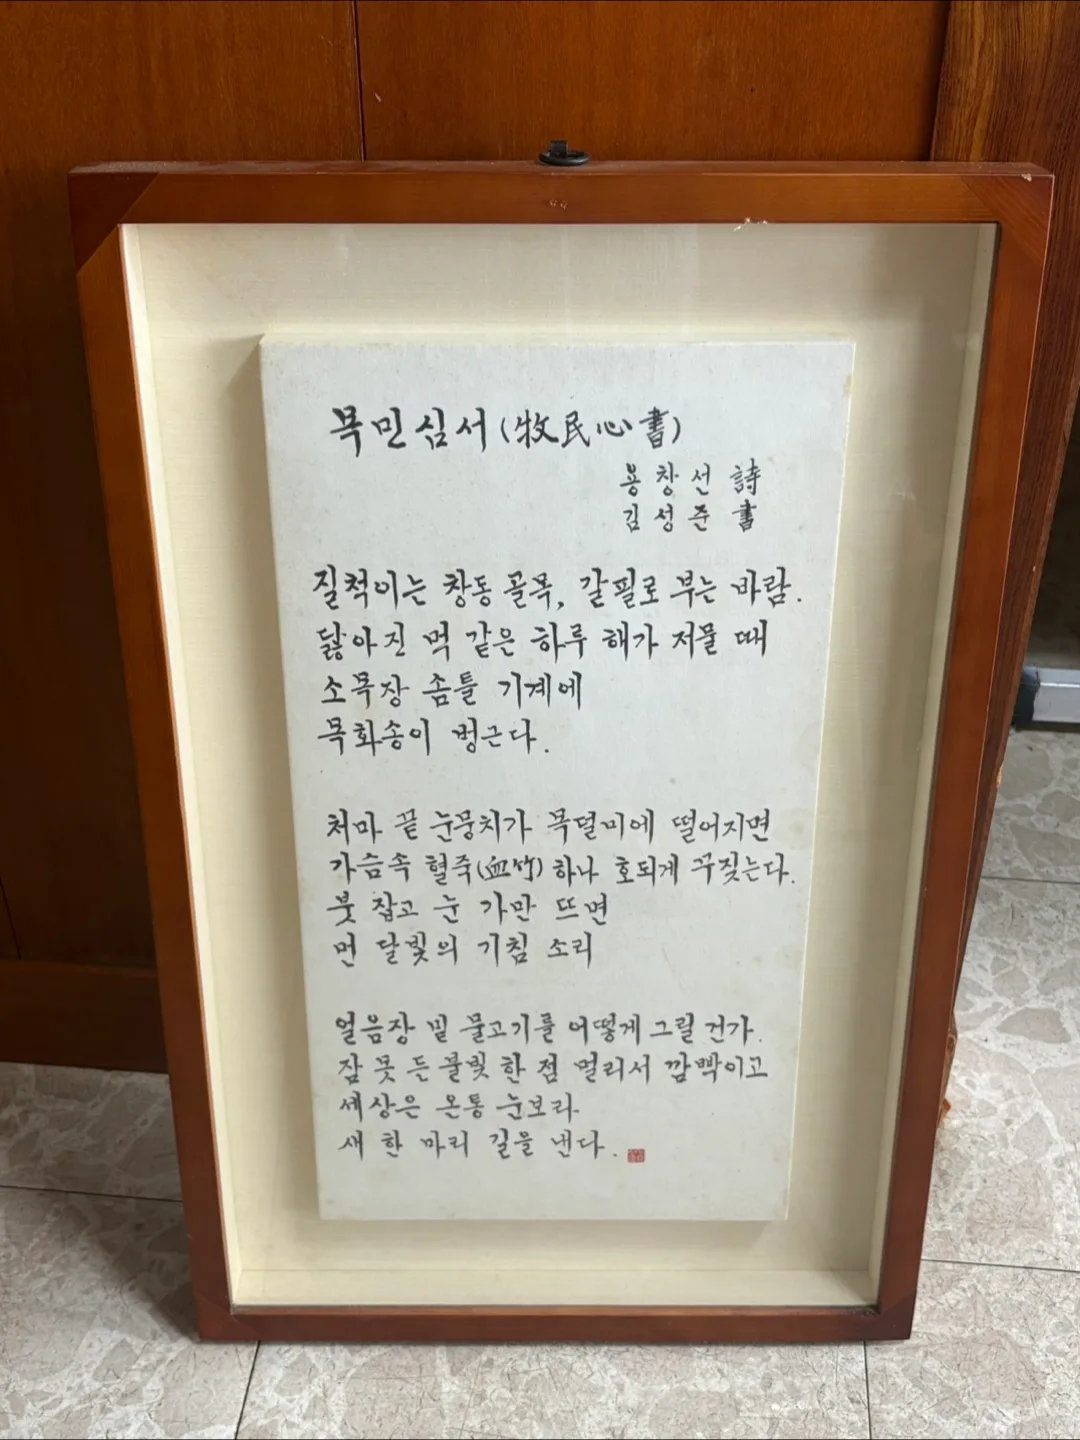 목민심서(牧民心書)
용창선 詩
김성준 書
질척이는 창동 골목, 갈필로 부는 바람.
닳아진 먹 같은 하루 해가 저물 때
소목장 솜틀 기계에
목화송이 벙근다.
처마 끝 눈뭉치가 목덜미에 떨어지면
가슴속 혈죽(血竹) 하나 호되게 꾸짖는다.
붓 잡고 눈 가만 뜨면
먼 달빛의 기침 소리
얼음장 밑 물고기를 어떻게 그릴 건가.
잠 못 든 불빛 한 점 멀리서 깜빡이고
세상은 온통 눈보라
새 한 마리 길을 낸다.